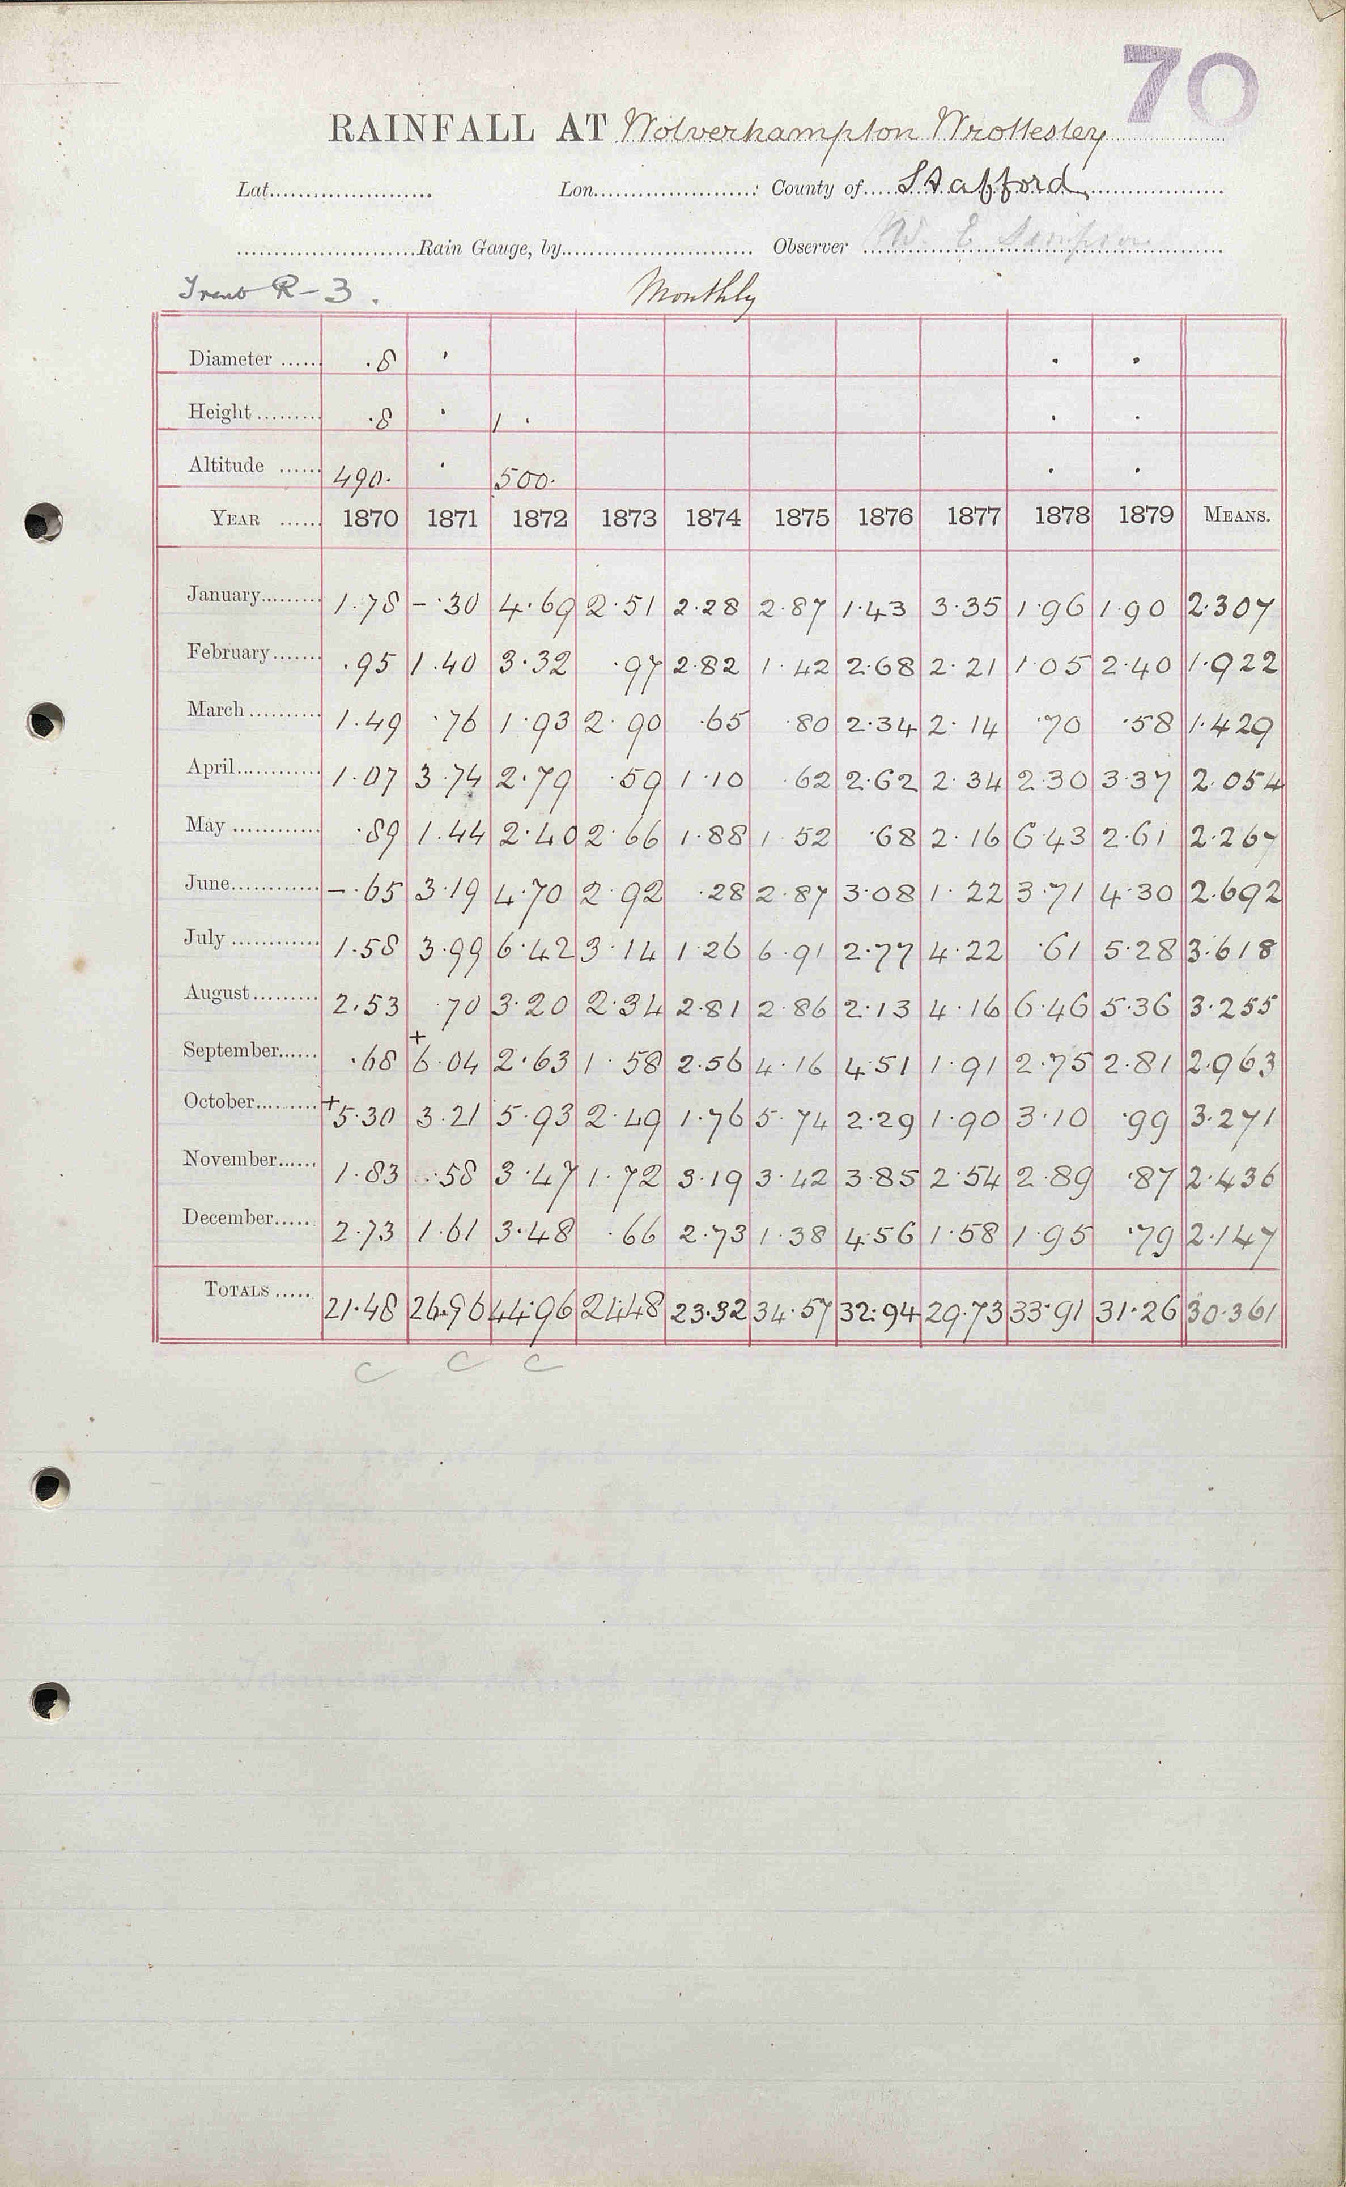 70
RAINFALL AT Wolverhampton Wrottesley
Lat. Lon. County of Stafford
Rain Gauge, by Observer W E Simpson
Trent R-3. Monthly
Diameter .8
Height .8 1.
Altitude 490. 500.
YEAR 1870 1871 1872 1873 1874 1875 1876 1877 1878 1879 MEANS.
January 1.78 -.30 4.69 2.51 2.28 2.87 1.43 3.35 1.96 1.90 2.307
February .95 1.40 3.32 .97 2.82 1.42 2.68 2.21 1.05 2.40 1.922
March 1.49 .76 1.93 2.90 .65 .80 2.34 2.14 .70 .58 1.429
April 1.07 3.74 2.79 .59 1.10 .62 2.62 2.34 2.30 3.37 2.054
May .89 1.44 2.40 2.66 1.88 1.52 .68 2.16 6.43 2.61 2.267
June -.65 3.19 4.70 2.92 .28 2.87 3.08 1.22 3.71 4.30 2.692
July 1.58 3.99 6.42 3.14 1.26 6.91 2.77 4.22 .61 5.28 3.618
August 2.53 .70 3.20 2.34 2.81 2.86 2.13 4.16 6.46 5.36 3.255
September .68 +6.04 2.63 1.58 2.56 4.16 4.51 1.91 2.75 2.81 2.963
October +5.30 3.21 5.93 2.49 1.76 5.74 2.29 1.90 3.10 .99 3.271
November 1.83 .58 3.47 1.72 3.19 3.42 3.85 2.54 2.89 .87 2.436
December 2.73 1.61 3.48 .66 2.73 1.38 4.56 1.58 1.95 .79 2.147
TOTALS 21.48 26.96 44.96 24.48 23.32 34.57 32.94 29.73 33.91 31.26 30.361
C C C